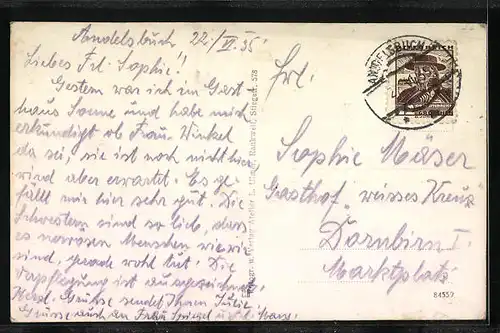 Andelsbuch 22./VI. 35
Liebes Frl. Sophie!!
Gestern war ich im Gast-
haus Sonne und habe mich
erkundigt ob Frau Winkel
da sei, sie ist noch nicht hier
wird aber erwartet. Es ge-
fällt mir hier sehr gut. Die
Schwestern sind so lieb, dass
es nervösen Menschen wie wir
sind, gerade wohl tut. Die
Verpflegung ist ausgezeichnet.
Herzl. Grüsse sendet Ihnen
Grüsse auch an Frau Spiegel u.
Frl.
Sophie Mäser
Gasthof „weisses Kreuz"
Dornbirn I.
Marktplatz
84559
ANDELSBUCH
ÖSTERREICH
Rankweil, Stiegeng. 578